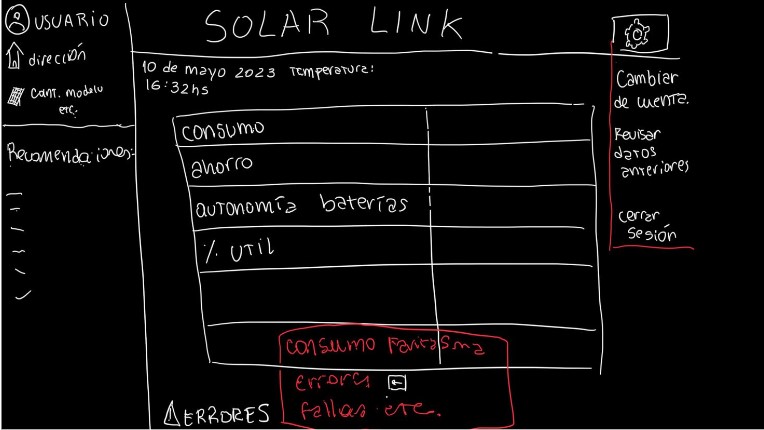 USUARIO
dirección
cant. modelo
etc.
Recomendaciones:
SOLAR LINK
10 de mayo 2023 Temperatura:
16:32hs
consumo
ahorro
autonomía baterías
% UTIL
consumo Fantasma
errores
fallas etc.
ERRORES
Cambiar
de cuenta.
Revisar
datos
anteriores
cerrar
sesión